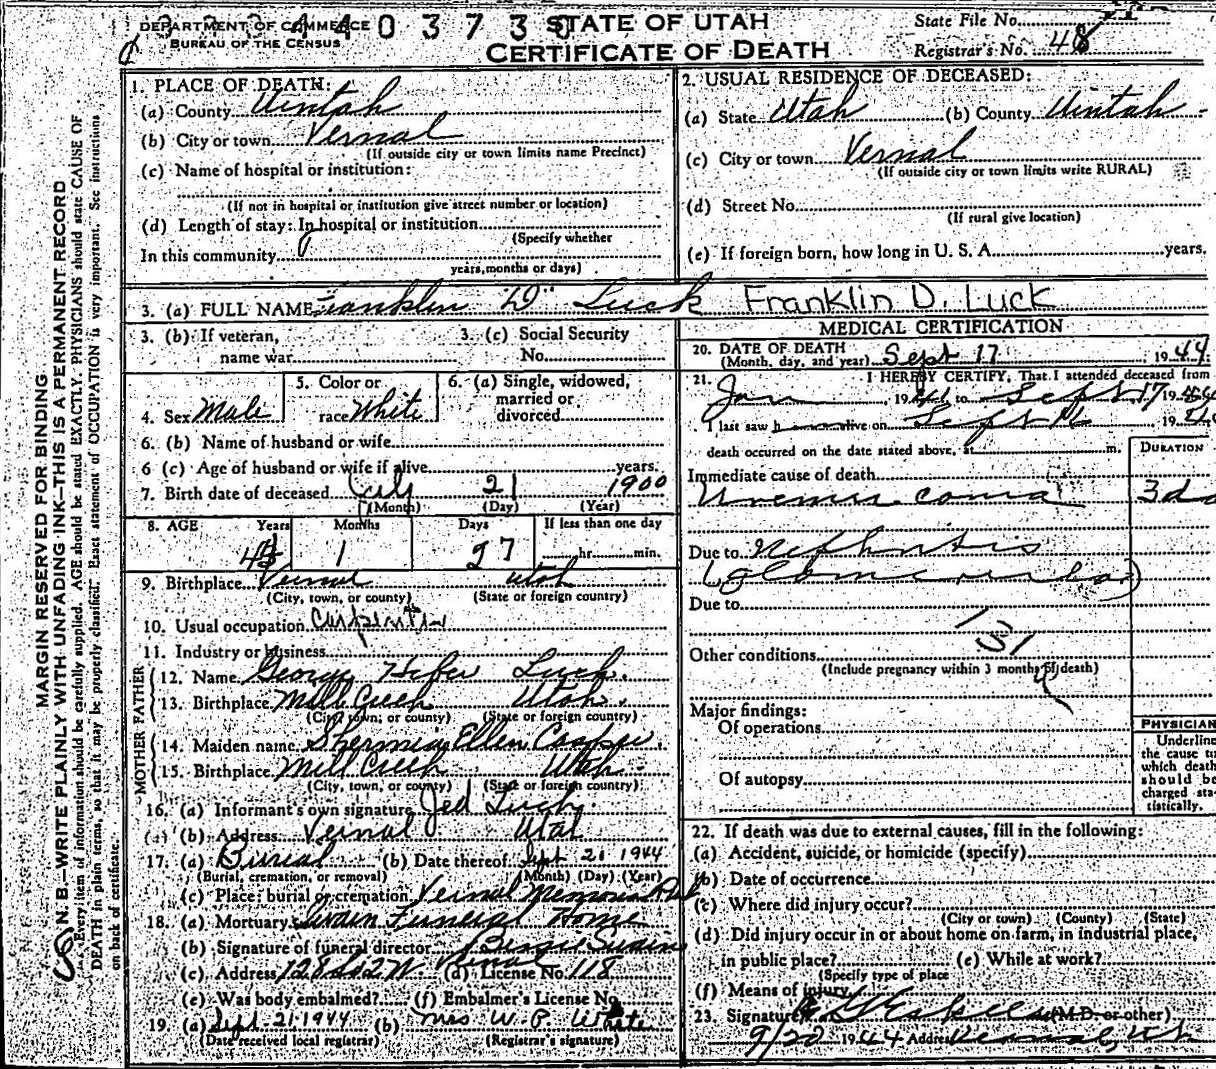 DEPARTMENT OF COMMERCE
BUREAU OF THE CENSUS
STATE OF UTAH
CERTIFICATE OF DEATH
State File No.
Registrar's No. 48
MARGIN RESERVED FOR BINDING
N. B.—WRITE PLAINLY WITH UNFADING INK—THIS IS A PERMANENT RECORD
Every item of information should be carefully supplied. AGE should be stated EXACTLY. PHYSICIANS should state CAUSE OF
DEATH in plain terms, so that it may be properly classified. Exact statement of OCCUPATION is very important. See instructions
on back of certificate.
1. PLACE OF DEATH:
(a) County Uintah
(b) City or town Vernal
(If outside city or town limits name Precinct)
(c) Name of hospital or institution:
(If not in hospital or institution give street number or location)
(d) Length of stay: In hospital or institution
(Specify whether
In this community
years, months or days)
2. USUAL RESIDENCE OF DECEASED:
(a) State Utah (b) County Uintah
(c) City or town Vernal
(If outside city or town limits write RURAL)
(d) Street No.
(If rural give location)
(e) If foreign born, how long in U. S. A. years.
3. (a) FULL NAME Franklin "D" Luck Franklin D. Luck
3. (b) If veteran,
name war
3. (c) Social Security
No.
4. Sex Male
5. Color or
race White
6. (a) Single, widowed,
married or
divorced
6. (b) Name of husband or wife
6 (c) Age of husband or wife if alive years.
7. Birth date of deceased July 21 1900
(Month) (Day) (Year)
8. AGE Years Months Days If less than one day
1 27 hr. min.
9. Birthplace Vernal Utah
(City, town, or county) (State or foreign country)
10. Usual occupation Carpenter
11. Industry or business
FATHER
12. Name George Heber Luck
13. Birthplace Mill Creek Utah
(City, town, or county) (State or foreign country)
MOTHER
14. Maiden name Ellen Cooper
15. Birthplace Mill Creek Utah
(City, town, or county) (State or foreign country)
16. (a) Informant's own signature Jed Luck
(b) Address Vernal Utah
17. (a) Burial (b) Date thereof Sept 21 1944
(Burial, cremation, or removal) (Month) (Day) (Year)
(c) Place; burial or cremation Vernal Memorial Park
18. (a) Mortuary Swain Funeral Home
(b) Signature of funeral director Bessie Swain
(c) Address Vernal (d) License No. 118
(e) Was body embalmed? (f) Embalmer's License No.
19. (a) Sept. 21, 1944 (b) Mrs W. P. White
(Date received local registrar) (Registrar's signature)
MEDICAL CERTIFICATION
20. DATE OF DEATH
(Month, day, and year) Sept 17 1944
21. I HEREBY CERTIFY, That I attended deceased from
Jan 19 to Sept 17 19
I last saw h alive on Sept 16 19
death occurred on the date stated above, at m.
DURATION
Immediate cause of death
Uremic coma 3 d
Due to Nephritis
(glomerular)
Due to
131
Other conditions
(Include pregnancy within 3 months of death)
Major findings:
Of operations
Of autopsy
PHYSICIAN
Underline
the cause to
which death
should be
charged sta-
tistically.
22. If death was due to external causes, fill in the following:
(a) Accident, suicide, or homicide (specify)
(b) Date of occurrence
(c) Where did injury occur?
(City or town) (County) (State)
(d) Did injury occur in or about home on farm, in industrial place,
in public place? (e) While at work?
(Specify type of place
(f) Means of injury
23. Signature (M.D. or other)
9/20 1944 Address Vernal, Ut